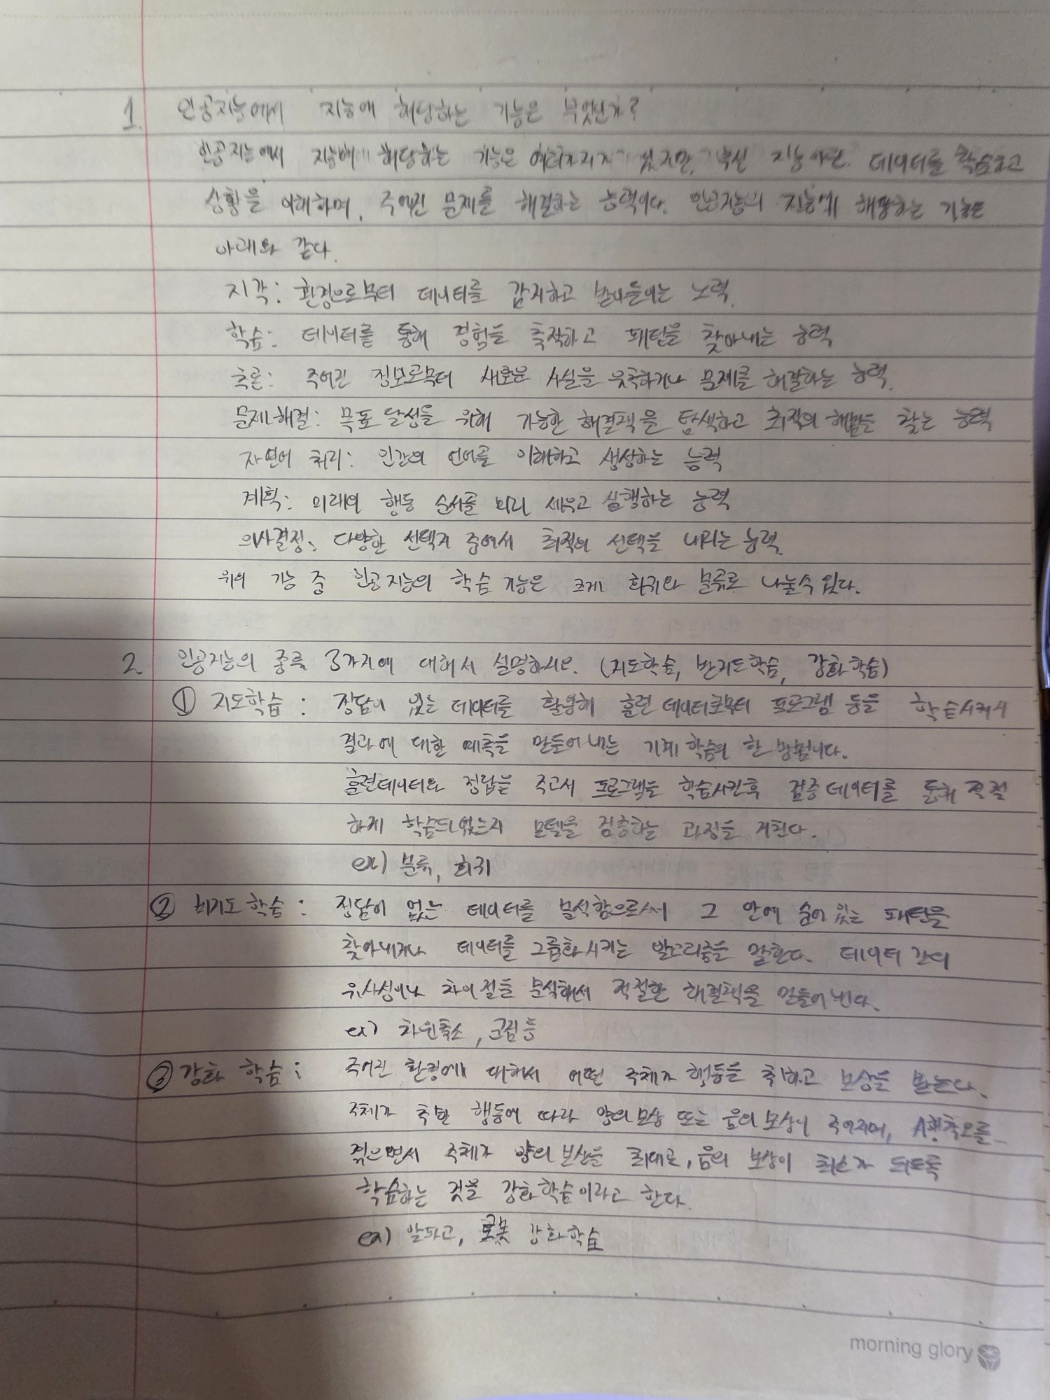 1. 인공지능에서 지능에 해당하는 기능은 무엇인가?
인공지능에서 지능에 해당하는 기능은 여러가지가 있지만, 지능이란 데이터를 학습하고
상황을 이해하며, 주어진 문제를 해결하는 능력이다. 인공지능의 지능에 해당하는 기능은
아래와 같다.
지각: 환경으로부터 데이터를 감지하고 받아들이는 노력.
학습: 데이터를 통해 경험을 축적하고 패턴을 찾아내는 능력
추론: 주어진 정보로부터 새로운 사실을 유추하거나 문제를 해결하는 능력.
문제해결: 목표 달성을 위해 가능한 해결책을 탐색하고 최적의 해법을 찾는 능력
자연어 처리: 인간의 언어를 이해하고 생성하는 능력
계획: 미래의 행동 순서를 미리 세우고 실행하는 능력
의사결정: 다양한 선택지 중에서 최적의 선택을 내리는 능력.
위의 기능 중 인공지능의 학습 기능은 크게 회귀와 분류로 나눌수 있다.
2. 인공지능의 종류 3가지에 대해서 설명하시오. (지도학습, 반지도학습, 강화학습)
① 지도학습 : 정답이 있는 데이터를 활용해 훈련 데이터로부터 프로그램 등을 학습시켜서
결과에 대한 예측을 만들어 내는 기계 학습의 한 방법입니다.
훈련데이터와 정답을 주고서 프로그램을 학습시킨후 검증 데이터를 통해 적절
하게 학습되었는지 모델을 검증하는 과정을 거친다.
ex) 분류, 회귀
② 비지도 학습 : 정답이 없는 데이터를 분석함으로서 그 안에 숨어 있는 패턴을
찾아내거나 데이터를 그룹화시키는 알고리즘을 말한다. 데이터 간의
유사성이나 차이점을 분석해서 적절한 해결책을 만들어 낸다.
ex) 차원축소, 군집 등
③ 강화 학습 : 주어진 환경에 대해서 어떤 주체가 행동을 취하고 보상을 받는다.
주체가 취한 행동에 따라 양의보상 또는 음의보상이 주어지며, 시행착오를
겪으면서 주체가 양의 보상을 최대로, 음의 보상이 최소가 되도록
학습하는 것을 강화학습이라고 한다.
ex) 알파고, 로봇 강화학습
morning glory